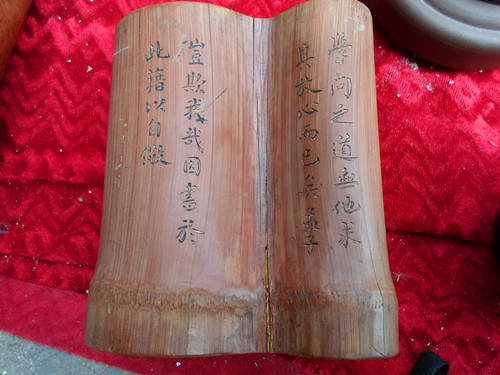 學问之道無他求
其放心而已矣孟子
欺我哉因書於
此藉以自儆